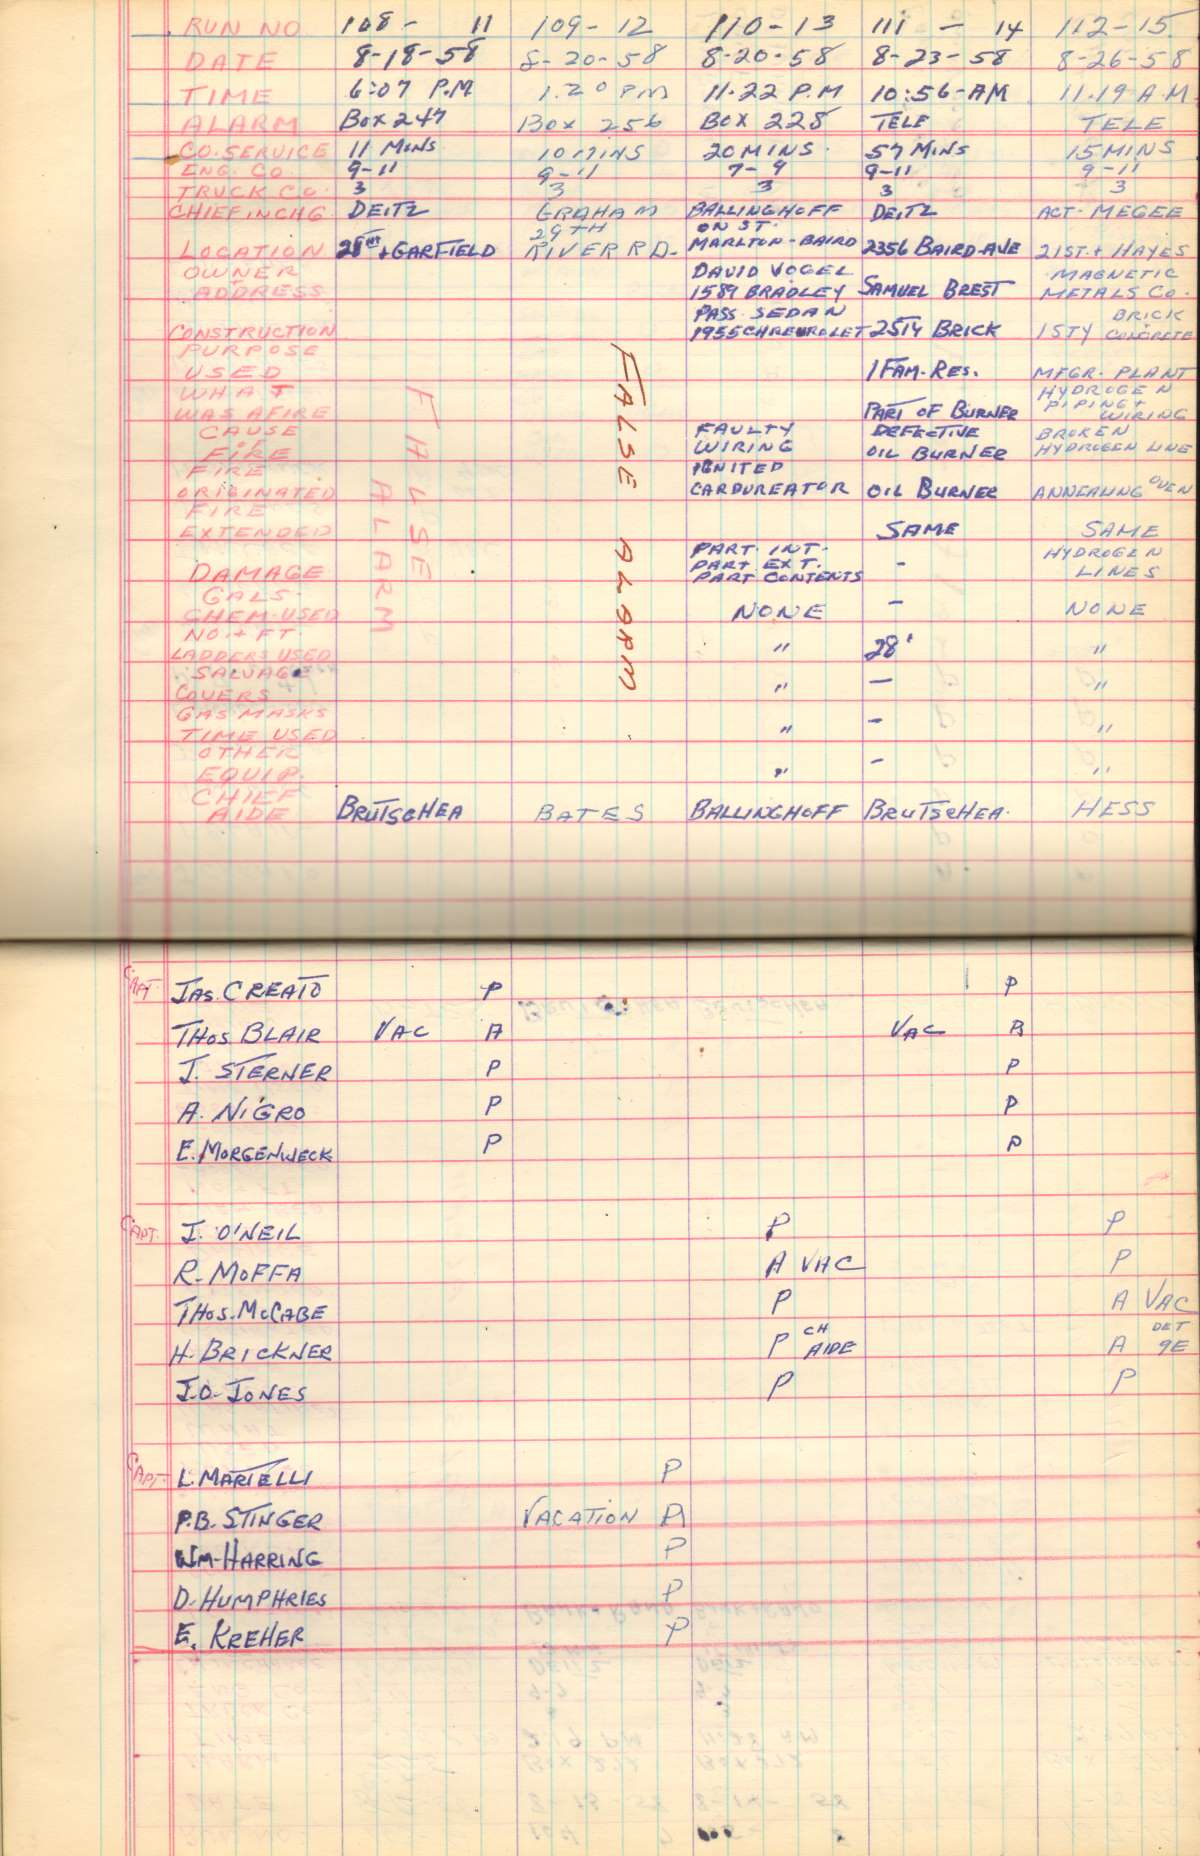 RUN NO 108 - 11 109-12 110-13 111 - 14 112-15
DATE 8-18-58 8-20-58 8-20-58 8-23-58 8-26-58
TIME 6:07 P.M 1.20 PM 11.22 P.M 10:56-AM 11.19 A.M
ALARM BOX 247 BOX 256 BOX 228 TELE TELE
CO. SERVICE 11 MINS 10 MINS 20 MINS. 57 MINS 15 MINS
ENG. CO. 9-11 9-11 7-9 9-11 9-11
TRUCK CO. 3 3 3 3 3
CHIEF IN CHG. DEITZ GRAHAM BALLINGHOFF DEITZ ACT-MEGEE
29TH ON ST.
LOCATION 28TH + GARFIELD RIVER RD- MARLTON-BAIRD 2356 BAIRD-AVE 21ST. + HAYES
OWNER DAVID VOGEL MAGNETIC
ADDRESS 1589 BRADLEY SAMUEL BREST METALS CO.
PASS. SEDAN BRICK
CONSTRUCTION 1955 CHREVROLET 2STY BRICK 1STY CONCRETE
PURPOSE
USED 1 FAM-RES. MFGR-PLANT
WHAT HYDROGEN
PIPING +
WAS AFIRE PART OF BURNER WIRING
CAUSE FAULTY DEFECTIVE BROKEN
OF
FIRE WIRING OIL BURNER HYDROGEN LINE
FIRE IGNITED
ORIGINATED CARDUREATOR OIL BURNER ANNEALING OVEN
FIRE
EXTENDED SAME SAME
PART. INT. HYDROGEN
PART EXT. -
DAMAGE PART CONTENTS LINES
GALS-
CHEM-USED NONE - NONE
NO. + FT.
LADDERS USED " 28' "
SALVAGE
COVERS " - "
GAS MASKS
TIME USED " - "
OTHER
EQUIP. " - "
CHIEF
AIDE BRUTSCHEA BATES BALLINGHOFF BRUTSCHEA. HESS
FALSE
ALARM
FALSE ALARM
CAPT. JAS. CREATO P P
THOS. BLAIR VAC A VAC A
J. STERNER P P
A. NIGRO P P
E. MORGENWECK P P
CAPT. J. O'NEIL P P
R-MOFFA A VAC P
THOS. McCABE P A VAC
H. BRICKNER P CH AIDE A DET 9E
J.O. JONES P P
CAPT. L. MARTELLI P
P.B. STINGER VACATION A
WM-HARRING P
D-HUMPHRIES P
E. KREHER P